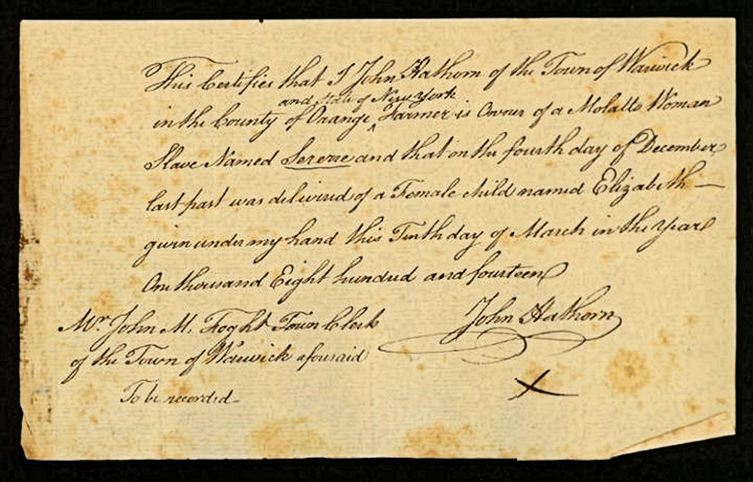 This Certifies that I John Hathorn of the Town of Warwick
and State of New York
in the County of Orange ^ Farmer is Owner of a Molatto Woman
Slave Named Sererse and that on the fourth day of December
last past was delivered of a Female child named Elizabeth —
given under my hand this Tenth day of March in the Year
One thousand Eight hundred and fourteen
John Hathorn
Mr. John M. Foght Town Clerk
of the Town of Warwick aforesaid
To be recorded –
X